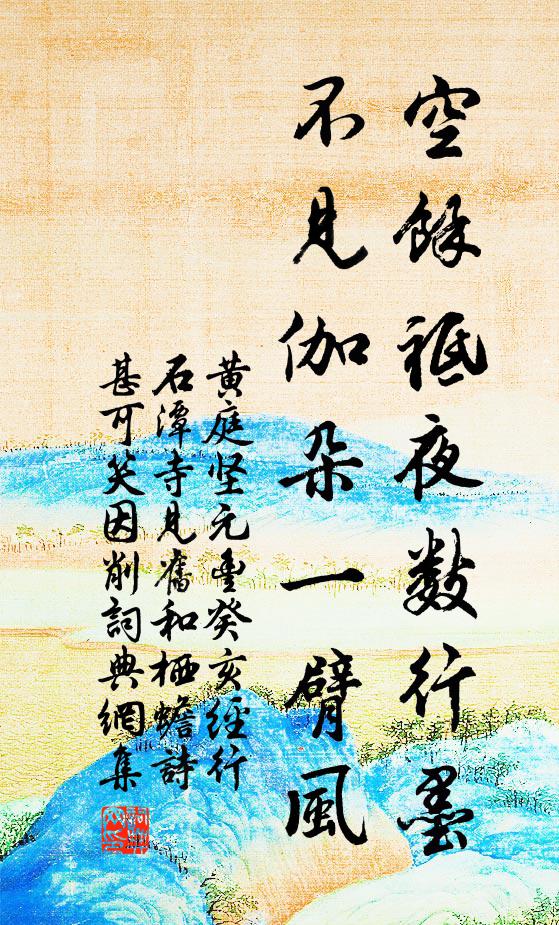 空餘祗夜數行墨
不見伽朵一臂風
黄庭坚元豊癸亥經行
石潭寺見舊和栖蟾詩
甚可笑因削詞典網集